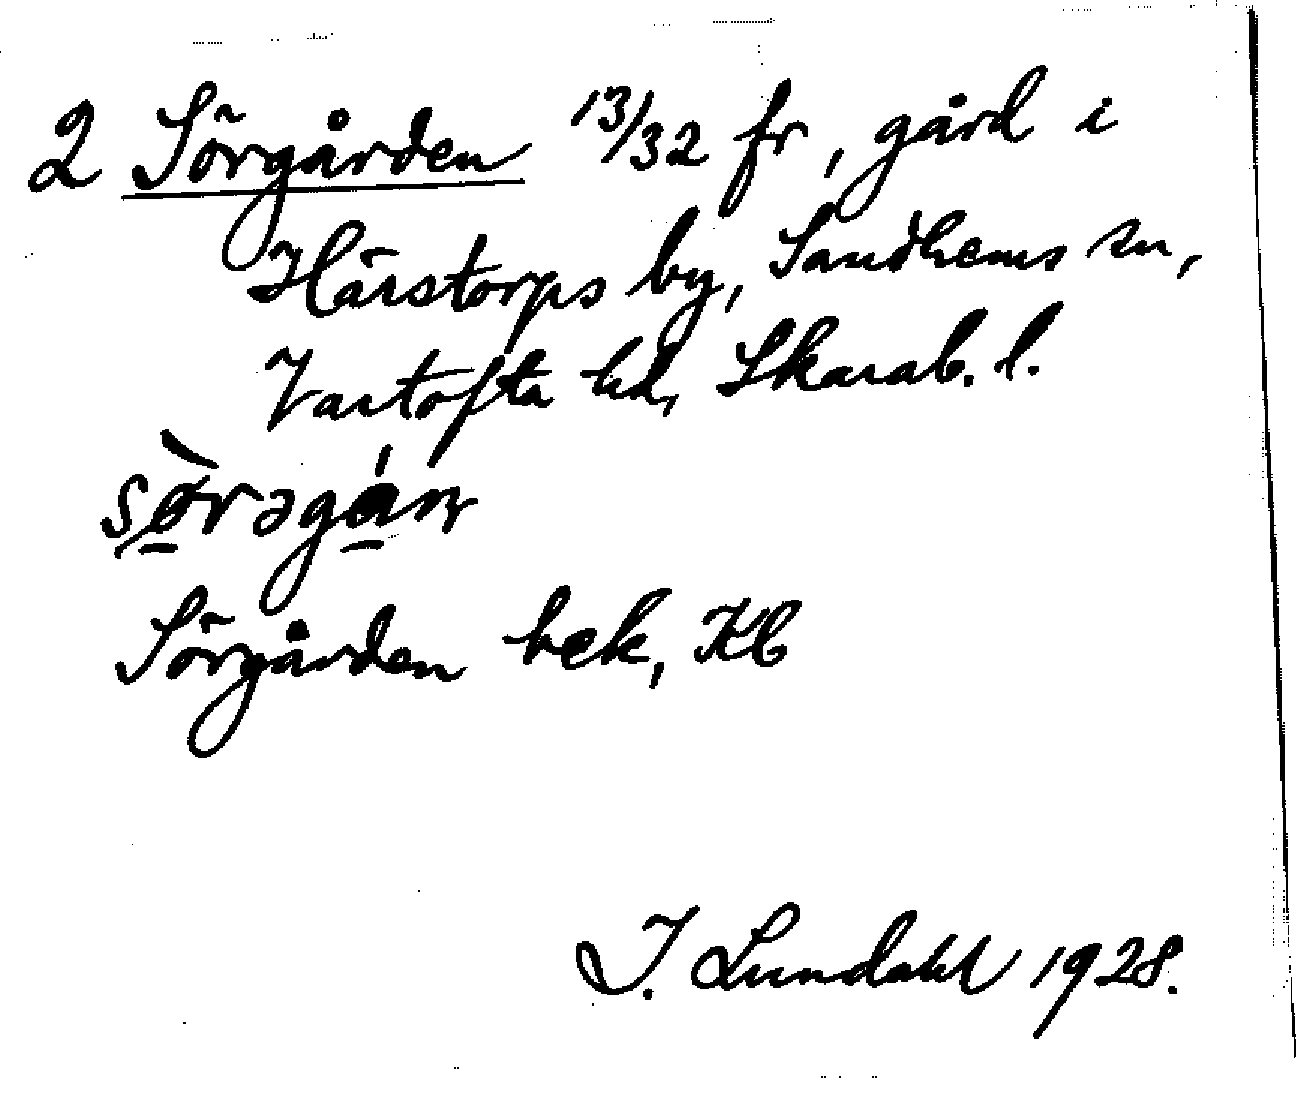 2 Sörgården 13/32 fr, gård i
Hårstorps by, Sandhems sn,
Vartofta hd, Skarab. l.
Sörgården bek, Kb
I. Lundahl 1928.